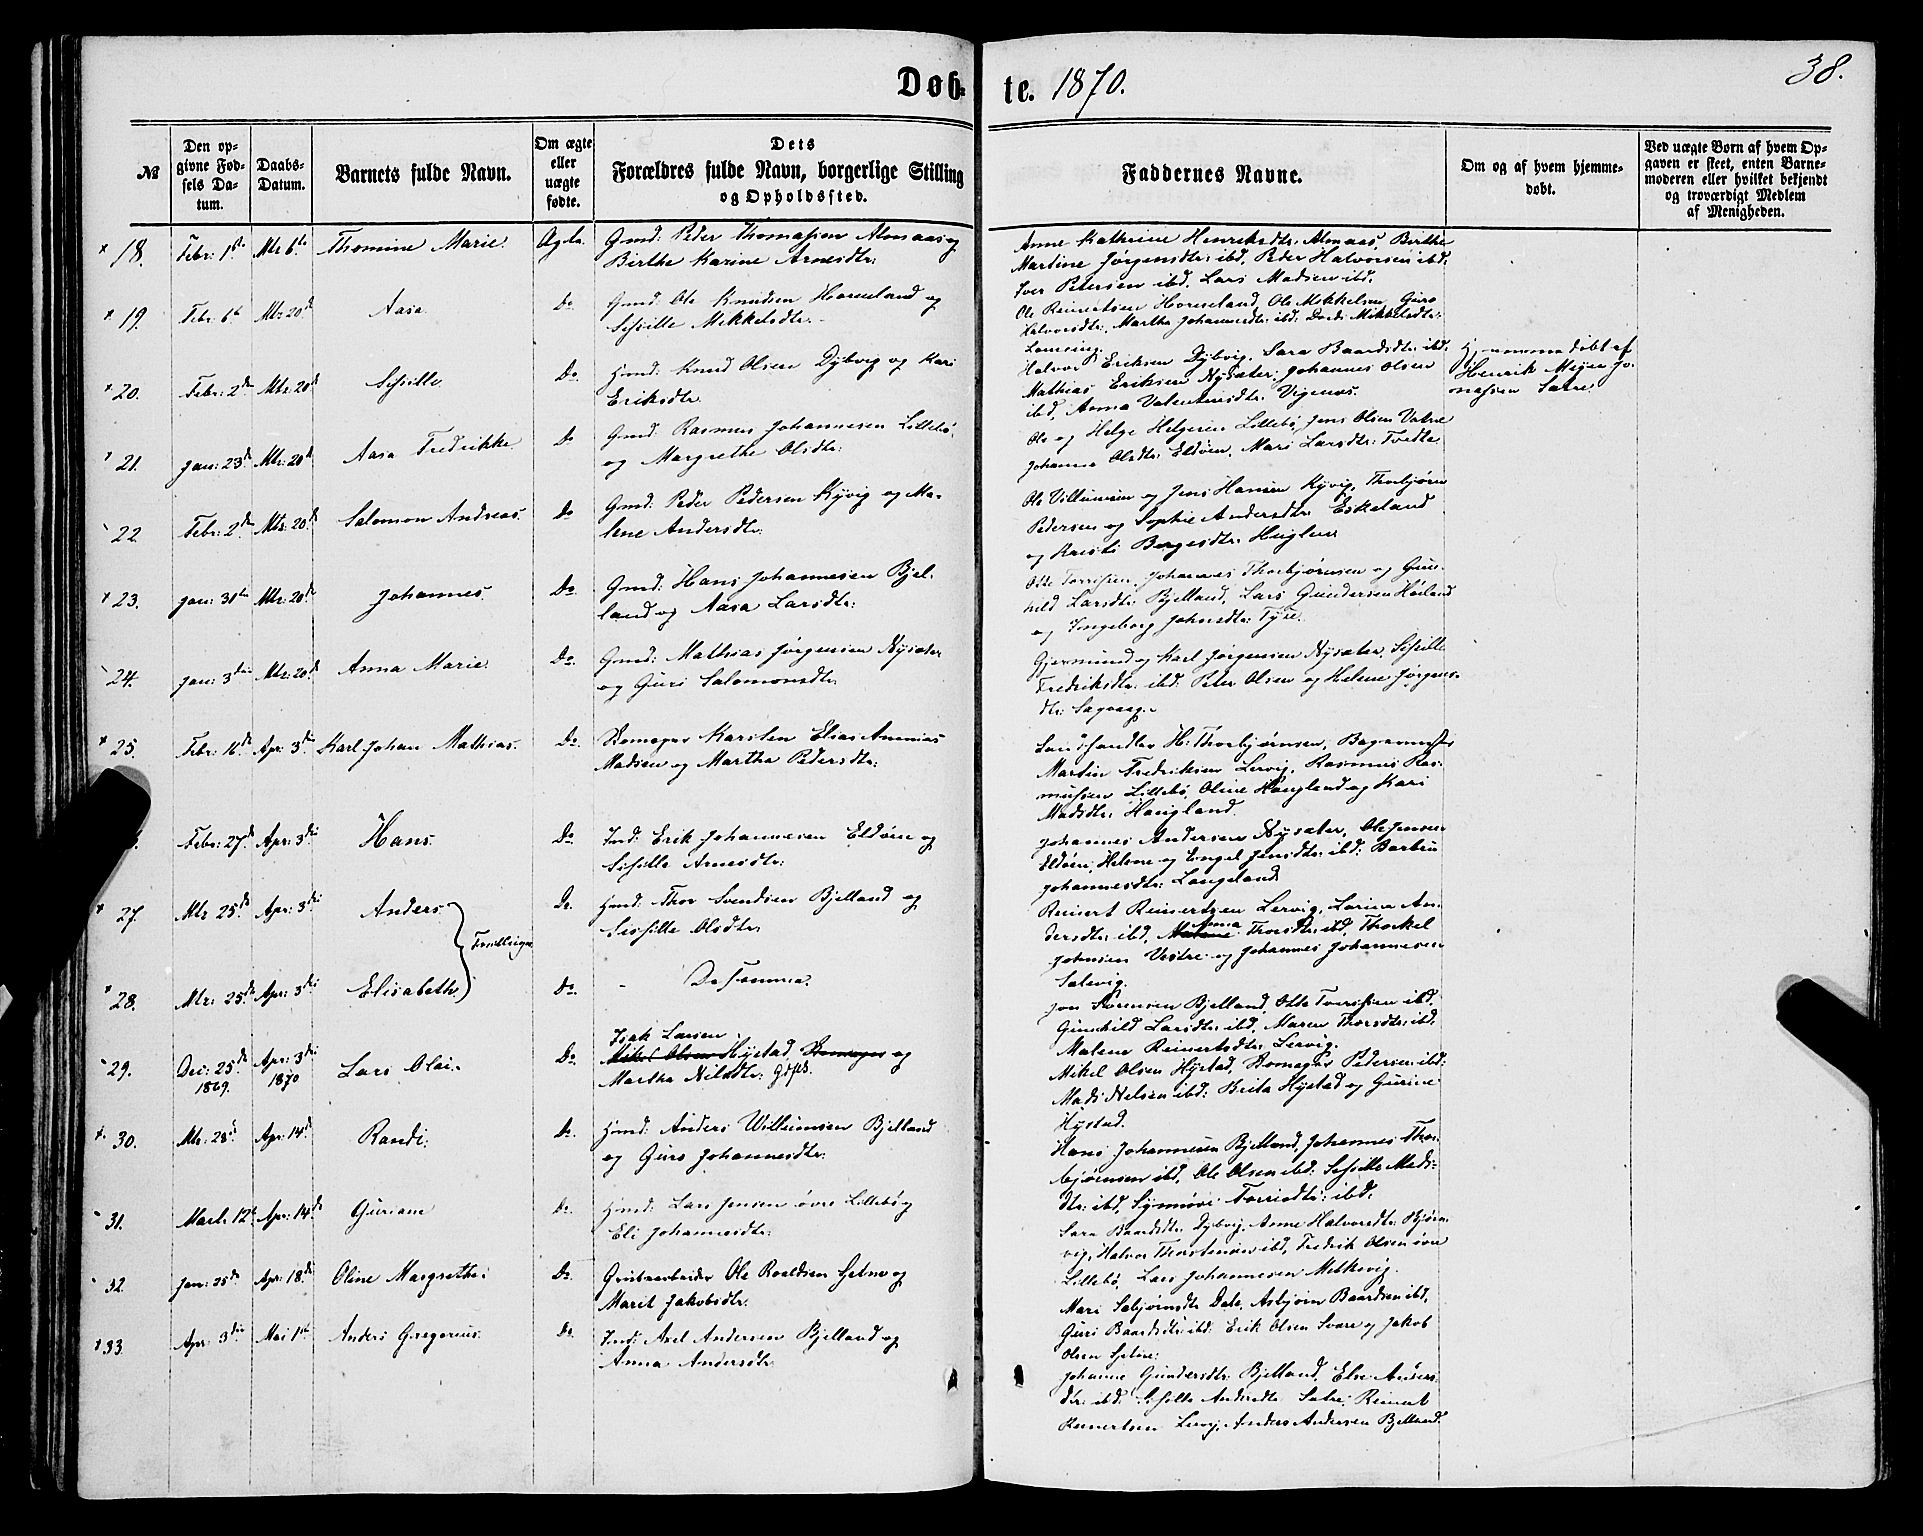 Døb-
te. 1870.
38.
№
Den op-
givne Fød-
sels Da-
tum.
Daabs-
Datum.
Barnets fulde Navn.
Om ægte
eller
uægte
fødte.
Dets
Forældres fulde Navn, borgerlige Stilling
og Opholdssted.
Faddernes Navne.
Om og af hvem hjemme-
døbt.
Ved uægte Børn af hvem Op-
gaven er skeet, enten Barne-
moderen eller hvilket bekjendt
og troværdigt Medlem
af Menigheden.
18. Febr: 1ste Mts 6te Thomine Marie. Ægte. Gmd: Peder Thomassen Almaas og
Birthe Karine Arnesdtr:
Anne Kathrine Henriksdtr: Almaas, Birthe
Martine Jørgensdtr: ibd, Peder Halvorsen ibd,
Iver Petersen ibd, Lars Madsen ibd.
19. Febr: 6te Mts 20de Aasa Do Gmd: Ole Knudsen Horneland og
Sissille Mikkelsdtr.
Ole Reinertsen Horneland, Ole Mikkelsen, Guro
Halvorsdtr:, Martha Johannesdtr: ibd: Dordi Mikkelsdtr:
20. Febr: 2den Mts: 20de Sissille Do Hmd: Knud Olsen Dybvig og Kari
Eriksdtr.
Halvor Eriksen Dybvig, Sara Baardsdtr: ibd.
Mathias Eriksen Nysæter, Johannes Olsen
ibd, Anna Valentinsdtr: Vigenæs.
Hjemmedøbt af
Henrik Meyer Jo-
nassen Sætre
21. Jan: 23de Mts: 20de Aasa Fredrikke Do Gmd: Rasmus Johannesen Lillebø,
og Margrethe Olsdtr:
Ole og Helge Helgesen Lillebø, Jens Olsen Vatne
Johanna Olsdtr: Eldøen, Mari Larsdtr: Tvedte
22. Febr: 2den Mts: 20de Salomon Andreas. Do Gmd: Peder Pedersen Kyvig og Ma-
lene Andersdtr:
Ole Villumsen og Jens Hansen Kyvig, Thorbjørn
Pedersen og Sophie Andersdtr: Eskeland
og Kristi Børgesdtr: Huglen
23. Jan: 31te Mts: 20de Johannes. Do Gmd: Hans Johannesen Bjel-
land og Aasa Larsdtr:
Otte Torrissen, Johannes Thorbjørnsen og Gun-
hild Larsdtr: Bjelland, Lars Gundersen Høiland
og Ingeborg Johnsdtr: Tyse.
24. Jan: 3die Mts: 20de Anna Marie. Do Gmd: Mathias Jørgensen Nysæter
og Guri Salomonsdtr:
Gjermund og Karl Jørgensen Nysæter, Sissille
Fredriksdtr: ibd: Peter Olsen og Helene Jørgens-
dtr: Sagvaag.
25. Febr: 16de Apr: 3die Karl Johan Mathias. Do Skomager Karsten Elias Ananias
Madsen og Martha Pedersdtr:
Landhandler H: Thorbjørnsen, Bagermester
Martin Fredriksen Lervig, Rasmus Ras-
mussen Lillebø, Oline Haugland og Kari
Madsdtr: Haugland.
Febr: 27de Apr: 3die Hans. Do Ind: Erik Johannesen Eldøen og
Sissille Arnesdtr:
Johannes Andersen Nysæter, Ole Jensen
Eldøen, Helene og Engel Jensdtr: ibd: Barbru
Johannesdtr: Langeland
27. Mts 25de Apr: 3die Anders Tvillinger Do Hmd: Thor Svendsen Bjelland og
Sissille Olsdtr
Reinert Reinertsen Lervig, Larine An-
dersdtr: ibd, Malene Anna Thorsdtr: ibd, Thorkel
Johnsen Vestre og Johannes Johannesen
Salevig.
28. Mts: 25de Apr: 3die Elisabeth. Do - De samme.
Jon Sørensen Bjelland, Otte Torrissen ibd.
Gunhild Larsdtr: ibd, Maren Thorsdtr: ibd.
Malene Reinertsdtr: Lervig.
29. Dec: 25de 1869. Apr: 3die 1870 Lars Olai. Do Isak Larsen
Mikel Olsen Hystad, Skomager og
Martha Nilsdtr: Gdfsk.
Mikel Olsen Hystad, Skomager Pedersen ibd:
Mads Nelsen ibd: Brita Hystad og Gurine
Hystad.
30. Mts: 28de Apr: 14de Randi. Do Hmd: Anders Willumsen Bjelland
og Guro Johannesdtr:
Hans Johannesen Bjelland, Johannes Thor-
bjørnsen ibd, Ole Olsen ibd: Sissille Mads-
dtr: ibd, Synnøve Torrisdtr: ibd.
31. Marts 12te Apr: 14de Guriane Do Hmd: Lars Jensen øvre Lillebø og
Eli Johannesdtr:
Sara Baardsdtr: Dybvig, Anne Halvorsdtr: Bjørn-
vig, Halvor Thorstensen ibd, Fredrik Olsen øvre
Lillebø, Lars Johannesen Melkevig.
32. Jan: 25de Apr: 18de Oline Margrethe. Do Grubearbeider Ole Roaldsen Hetne og
Marit Jakobsdtr.
Mari Sabjørnsdtr: Dale, Asbjørn Baardsen ibd,
Guri Baardsdtr: ibd: Erik Olsen Svare og Jakob
Olsen
33. Apr: 3die Mai 1ste Anders Gregorius. Do Ind: Axel Andersen Bjelland og
Anna Andersdtr
Johanne Gundersdtr: Bjelland, Else Anders-
dtr: ibd: Sissille Andersdtr Sætre, Reinert
Reinertsen Lervig, Anders Andersen Bjelland.